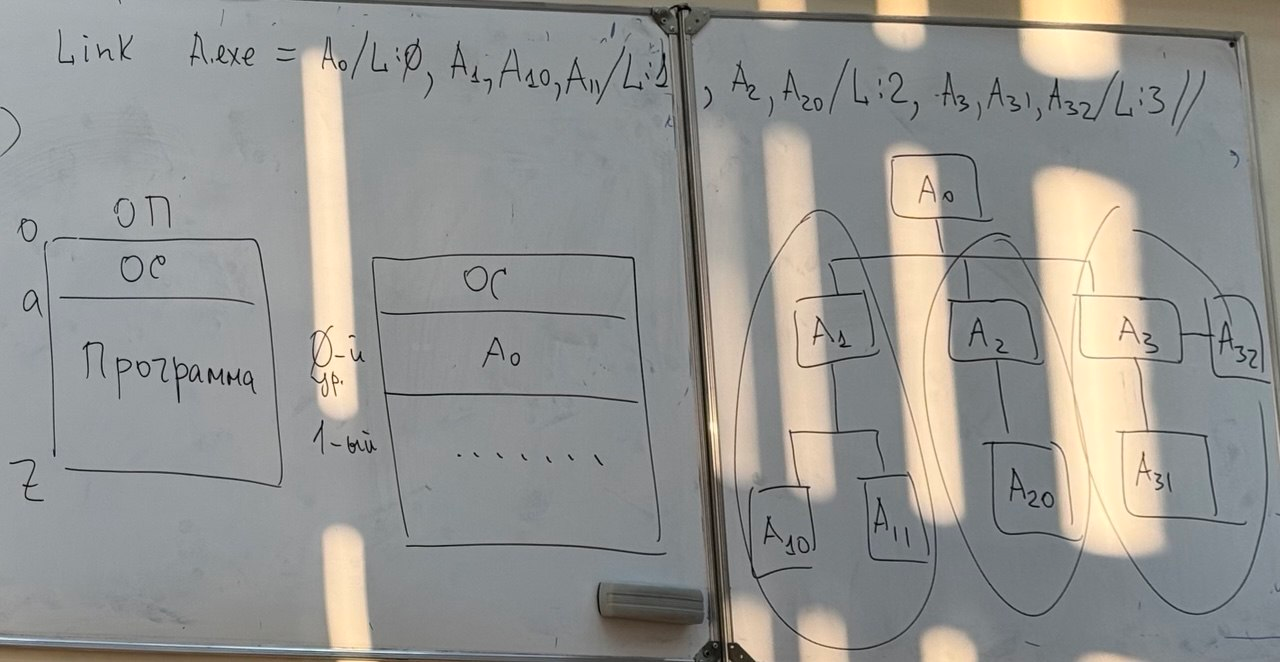 Link A.exe = A₀/L:0, A₁, A₁₀, A₁₁/L:1, A₂, A₂₀/L:2, A₃, A₃₁, A₃₂/L:3//
)
ОП
0
ОС
a
Программа
Z
ОС
0-й
ур.
A₀
1-ый
. . . . . . .
A₀
A₁
A₂
A₃
A₃₂
A₁₀
A₁₁
A₂₀
A₃₁